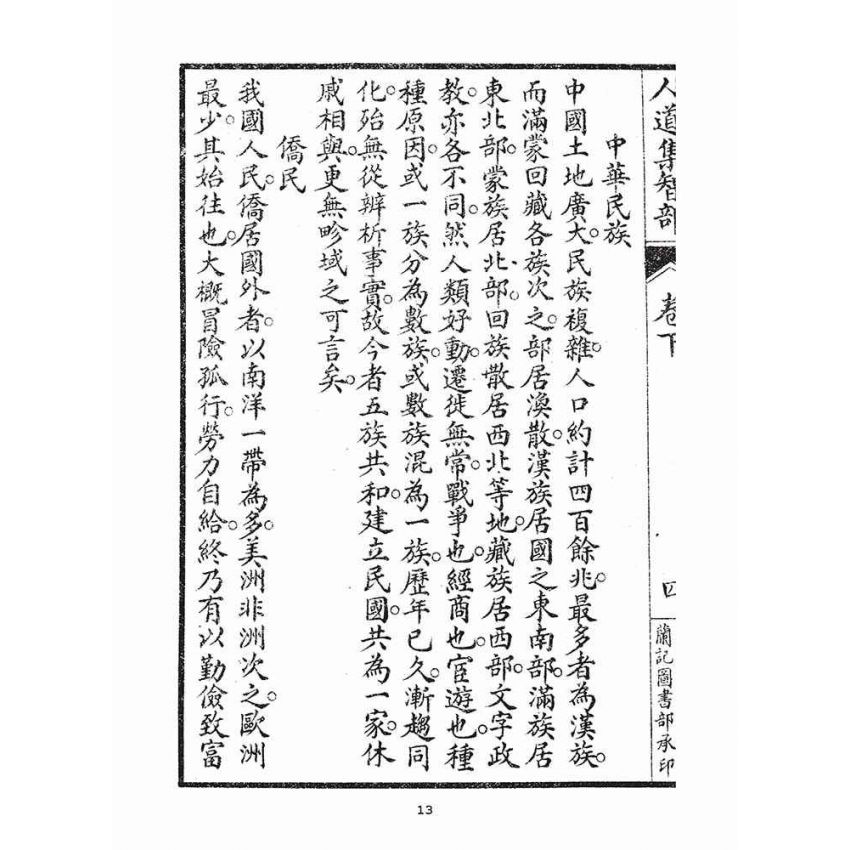 人道集智部 卷下 四 蘭記圖書部承印
中華民族
中國土地廣大。民族複雜。人口約計四百餘兆。最多者為漢族。
而滿蒙回藏各族次之。部居渙散。漢族居國之東南部。滿族居
東北部。蒙族居北部。回族散居西北等地。藏族居西部。文字政
教。亦各不同。然人類好動。遷徙無常。戰爭也。經商也。宦遊也。種
種原因。或一族分為數族。或數族混為一族。歷年已久。漸趨同
化。殆無從辨析事實。故今者五族共和。建立民國。共為一家。休
戚相與。更無畛域之可言矣。
僑民
我國人民。僑居國外者。以南洋一帶為多。美洲非洲次之。歐洲
最少。其始往也。大概冒險孤行。勞力自給。終乃有以勤儉致富
13